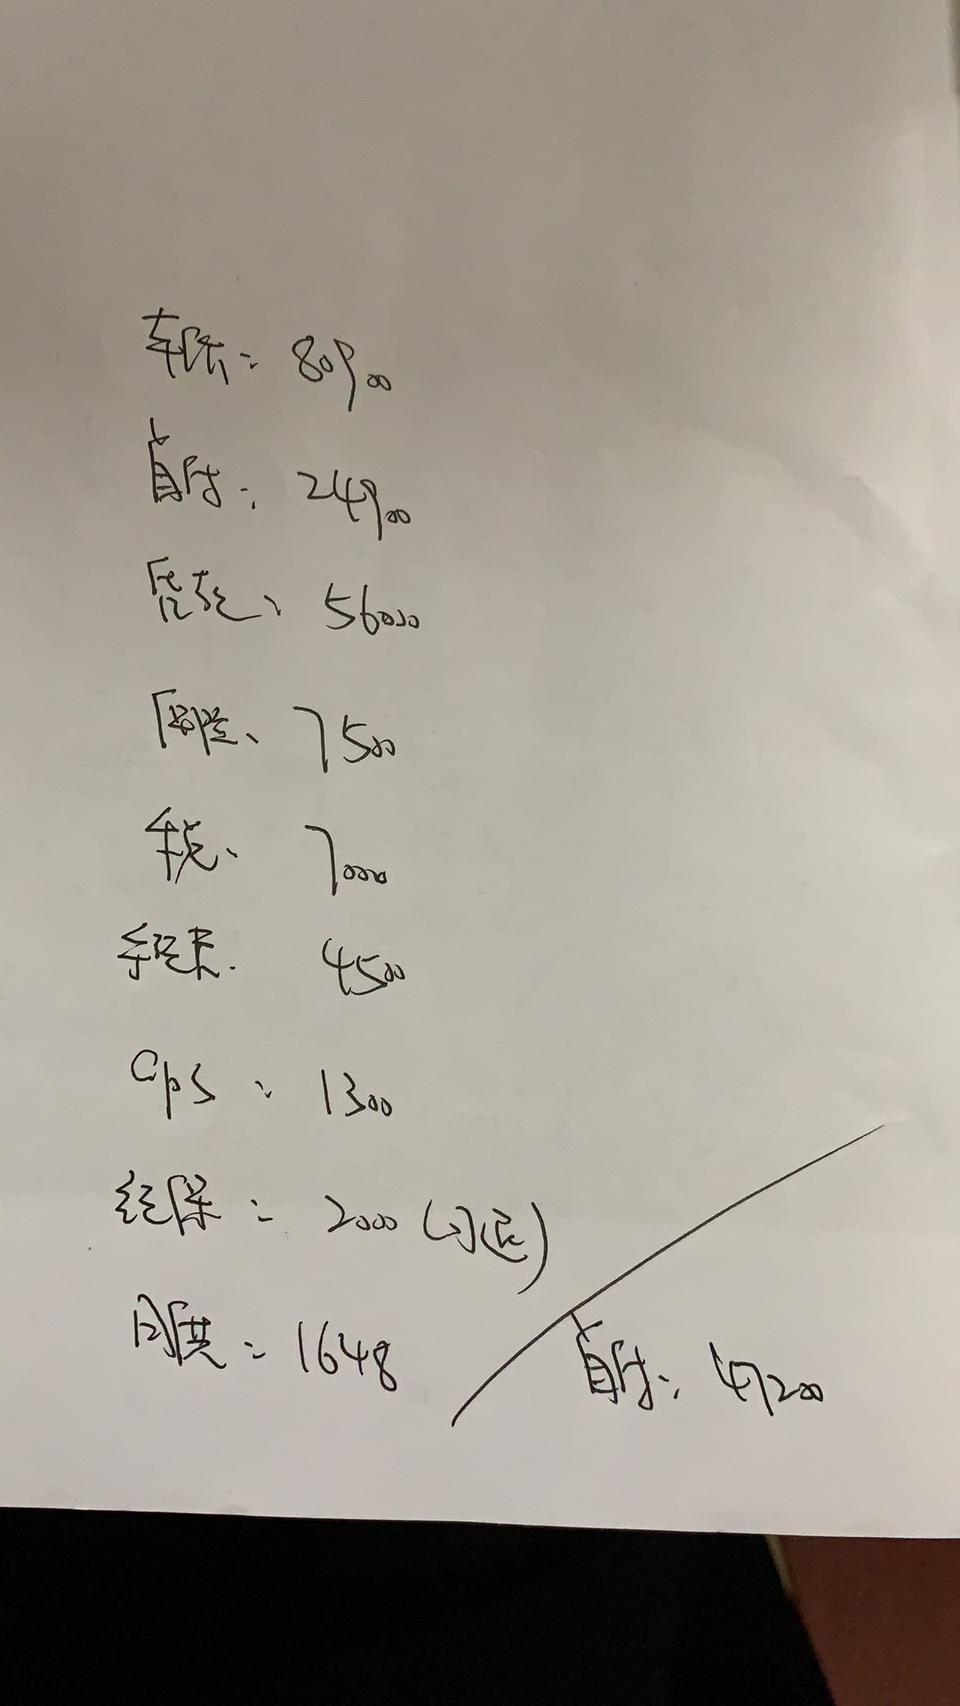 车价: 80900
首付: 24900
尾款: 56000
保险、 7500
车税、 7000
手续费. 4500
GPS: 1300
续保: 2000 (可退)
月供: 1648
首付: 47200